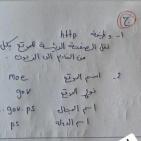 ج
1- وظيفة http
نقل الصفحة الرئيسية للموقع بكل
من الخادم إلى الزبون
2- اسم الموقع moe
نوع الموقع gov
اسم المجال .gov.ps
اسم الدولة ps